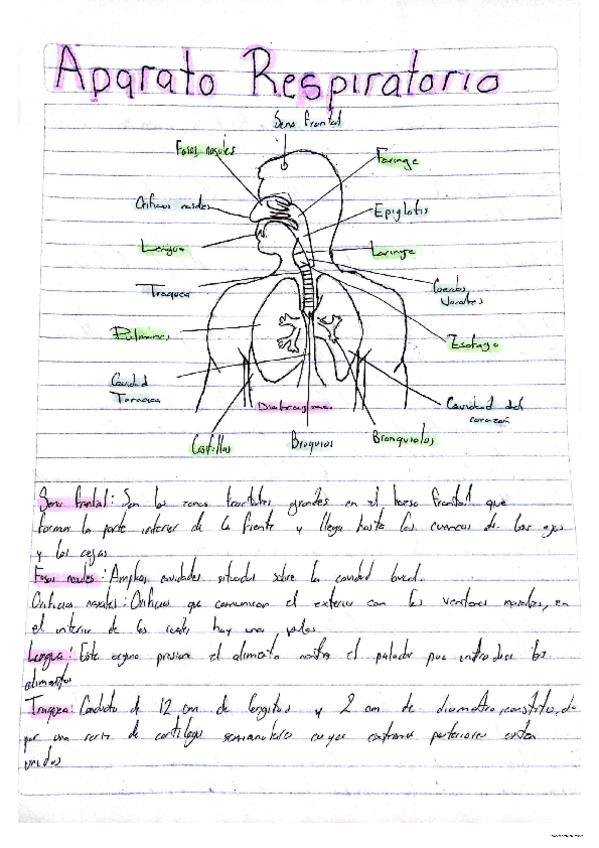 Aparato Respiratorio
Seno frontal
Fosas nasales
Faringe
Orificios nasales
Epiglotis
Lengua
Laringe
Traquea
Cuerdas
Vocales
Pulmones
Esofago
Cavidad
Toracica
Diafragma
Cavidad del
corazón
Costillas
Bronquios
Bronquiolos
Seno frontal: Son las zonas grandes en el hueso frontal que
forman la parte inferior de la frente y llega hasta las cuencas de los ojos
y las cejas
Fosas nasales: Amplias cavidades situadas sobre la cavidad bucal.
Orificios nasales: Orificios que comunican el exterior con las ventanas nasales, en
el interior de las cuales hay unos pelos
Lengua: Este organo presiona el alimento contra el paladar para introducir los
alimentos
Traquea: Conducto de 12 cm de longitud y 2 cm de diametro, constituido
por una serie de cartilagos semianulares cuyos extremos posteriores estan
unidos